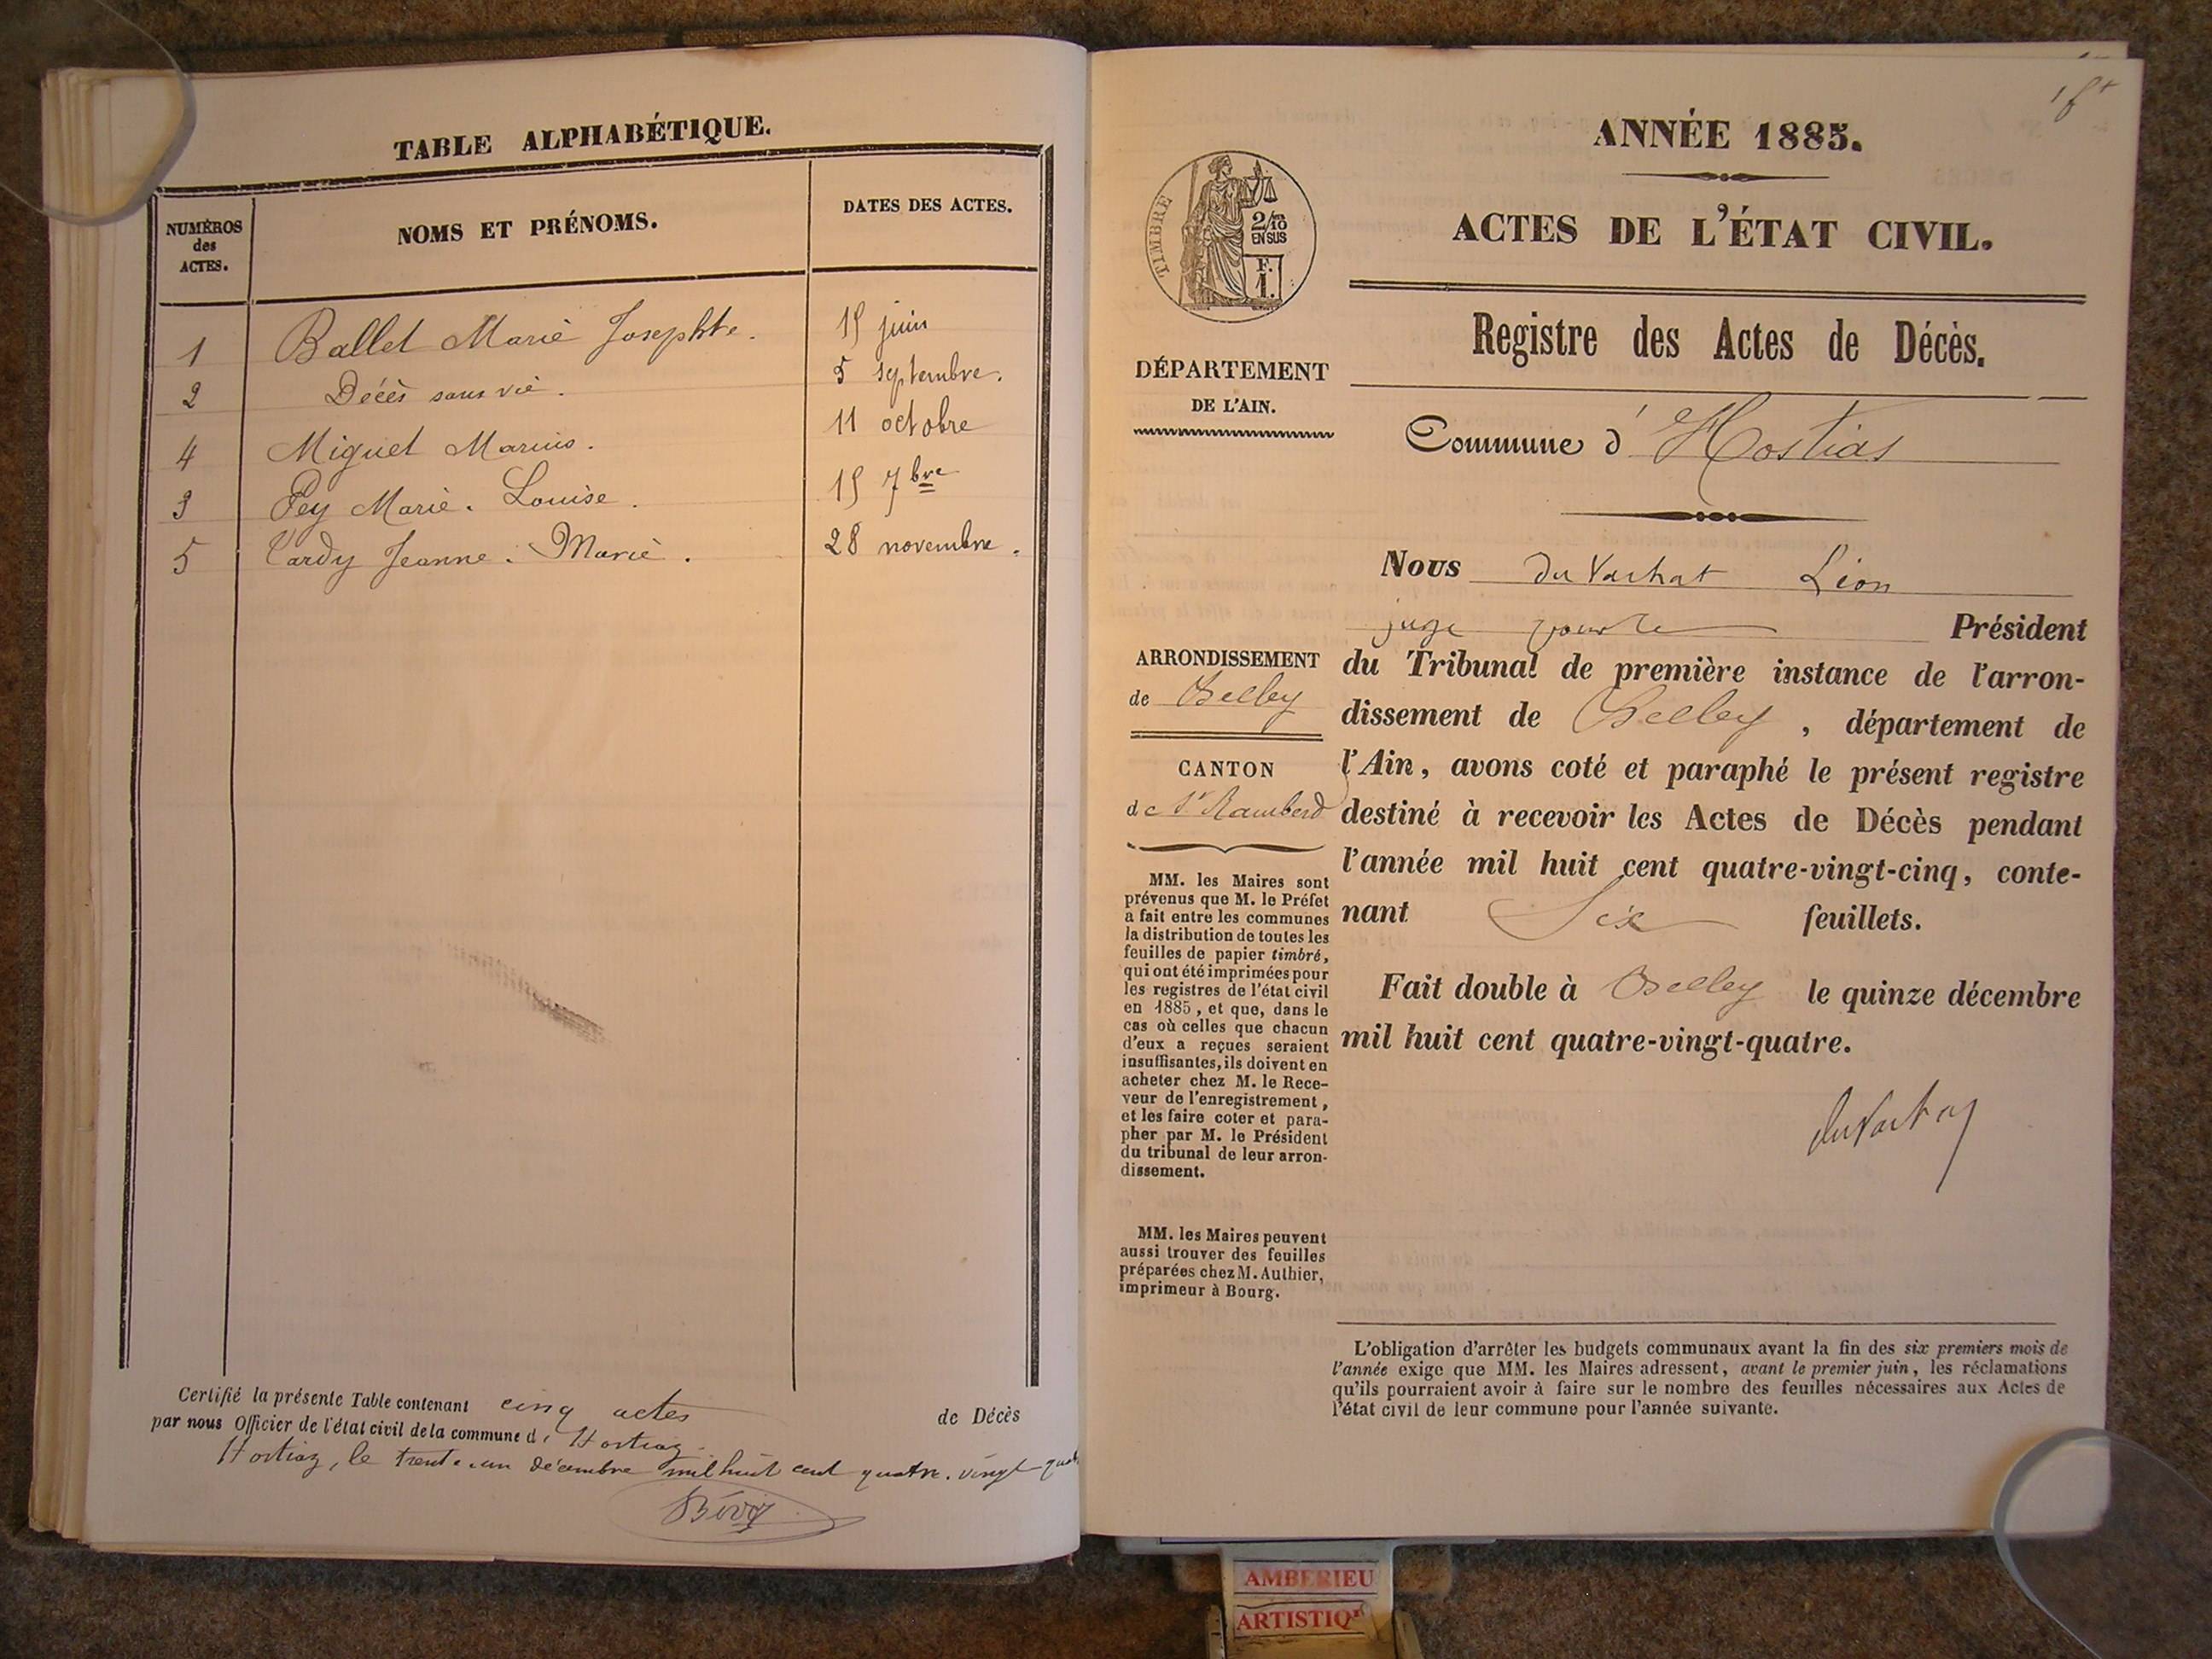 TABLE ALPHABÉTIQUE.
NUMÉROS des ACTES. NOMS ET PRÉNOMS. DATES DES ACTES.
1 Ballet Marie Josephte. 15 juin
2 Décès sans vie. 5 septembre.
4 Miguet Marius. 11 octobre
3 Pey Marie. Louise. 15 7bre
5 Tardy Jeanne. Marie. 28 novembre.
Certifié la présente Table contenant cinq actes de Décès
par nous Officier de l'état civil de la commune d' Hostiaz.
Hostiaz, le trente-un décembre mil huit cent quatre-vingt
1er
ANNÉE 1885.
ACTES DE L'ÉTAT CIVIL.
TIMBRE
2/10 EN SUS
F. 1.
Registre des Actes de Décès.
DÉPARTEMENT
DE L'AIN.
Commune d' Hostias
Nous du Vachat Léon
juge pour le Président
ARRONDISSEMENT
de Belley
du Tribunal de première instance de l'arron-
dissement de Belley, département de
l'Ain, avons coté et paraphé le présent registre
destiné à recevoir les Actes de Décès pendant
l'année mil huit cent quatre-vingt-cinq, conte-
nant Six feuillets.
Fait double à Belley le quinze décembre
mil huit cent quatre-vingt-quatre.
CANTON
de St Rambert
MM. les Maires sont
prévenus que M. le Préfet
a fait entre les communes
la distribution de toutes les
feuilles de papier timbré,
qui ont été imprimées pour
les registres de l'état civil
en 1885, et que, dans le
cas où celles que chacun
d'eux a reçues seraient
insuffisantes, ils doivent en
acheter chez M. le Rece-
veur de l'enregistrement,
et les faire coter et para-
pher par M. le Président
du tribunal de leur arron-
dissement.
MM. les Maires peuvent
aussi trouver des feuilles
préparées chez M. Authier,
imprimeur à Bourg.
L'obligation d'arrêter les budgets communaux avant la fin des six premiers mois de
l'année exige que MM. les Maires adressent, avant le premier juin, les réclamations
qu'ils pourraient avoir à faire sur le nombre des feuilles nécessaires aux Actes de
l'état civil de leur commune pour l'année suivante.
AMBERIEU
ARTISTIQ